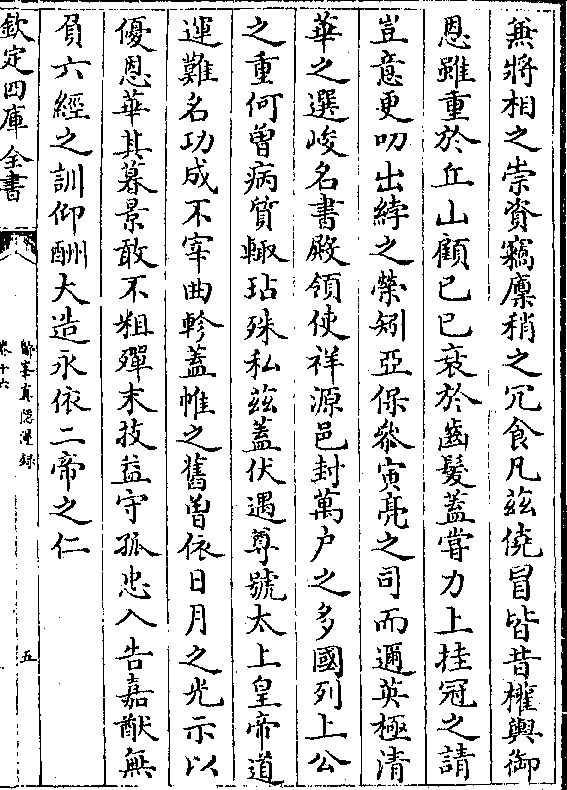 無將相之崇資竊廪稍之冗食凡兹僥冒皆昔權輿御
恩雖重於丘山顧已已衰於齒髮蓋嘗力上挂冠之請
豈意更叨出綍之榮矧亞保叅寅亮之司而邇英極清
華之選峻名書殿領使祥源邑封萬户之多國列上公
之重何曾病質輙玷殊私兹蓋伏遇尊號太上皇帝道
運難名功成不宰曲軫蓋帷之舊曾依日月之光示以
優恩華其暮景敢不粗殫末技益守孤忠入告嘉猷無
負六經之訓仰酬大造永依二帝之仁
欽定四庫全書
鄮峯真隠漫録
卷十六
五